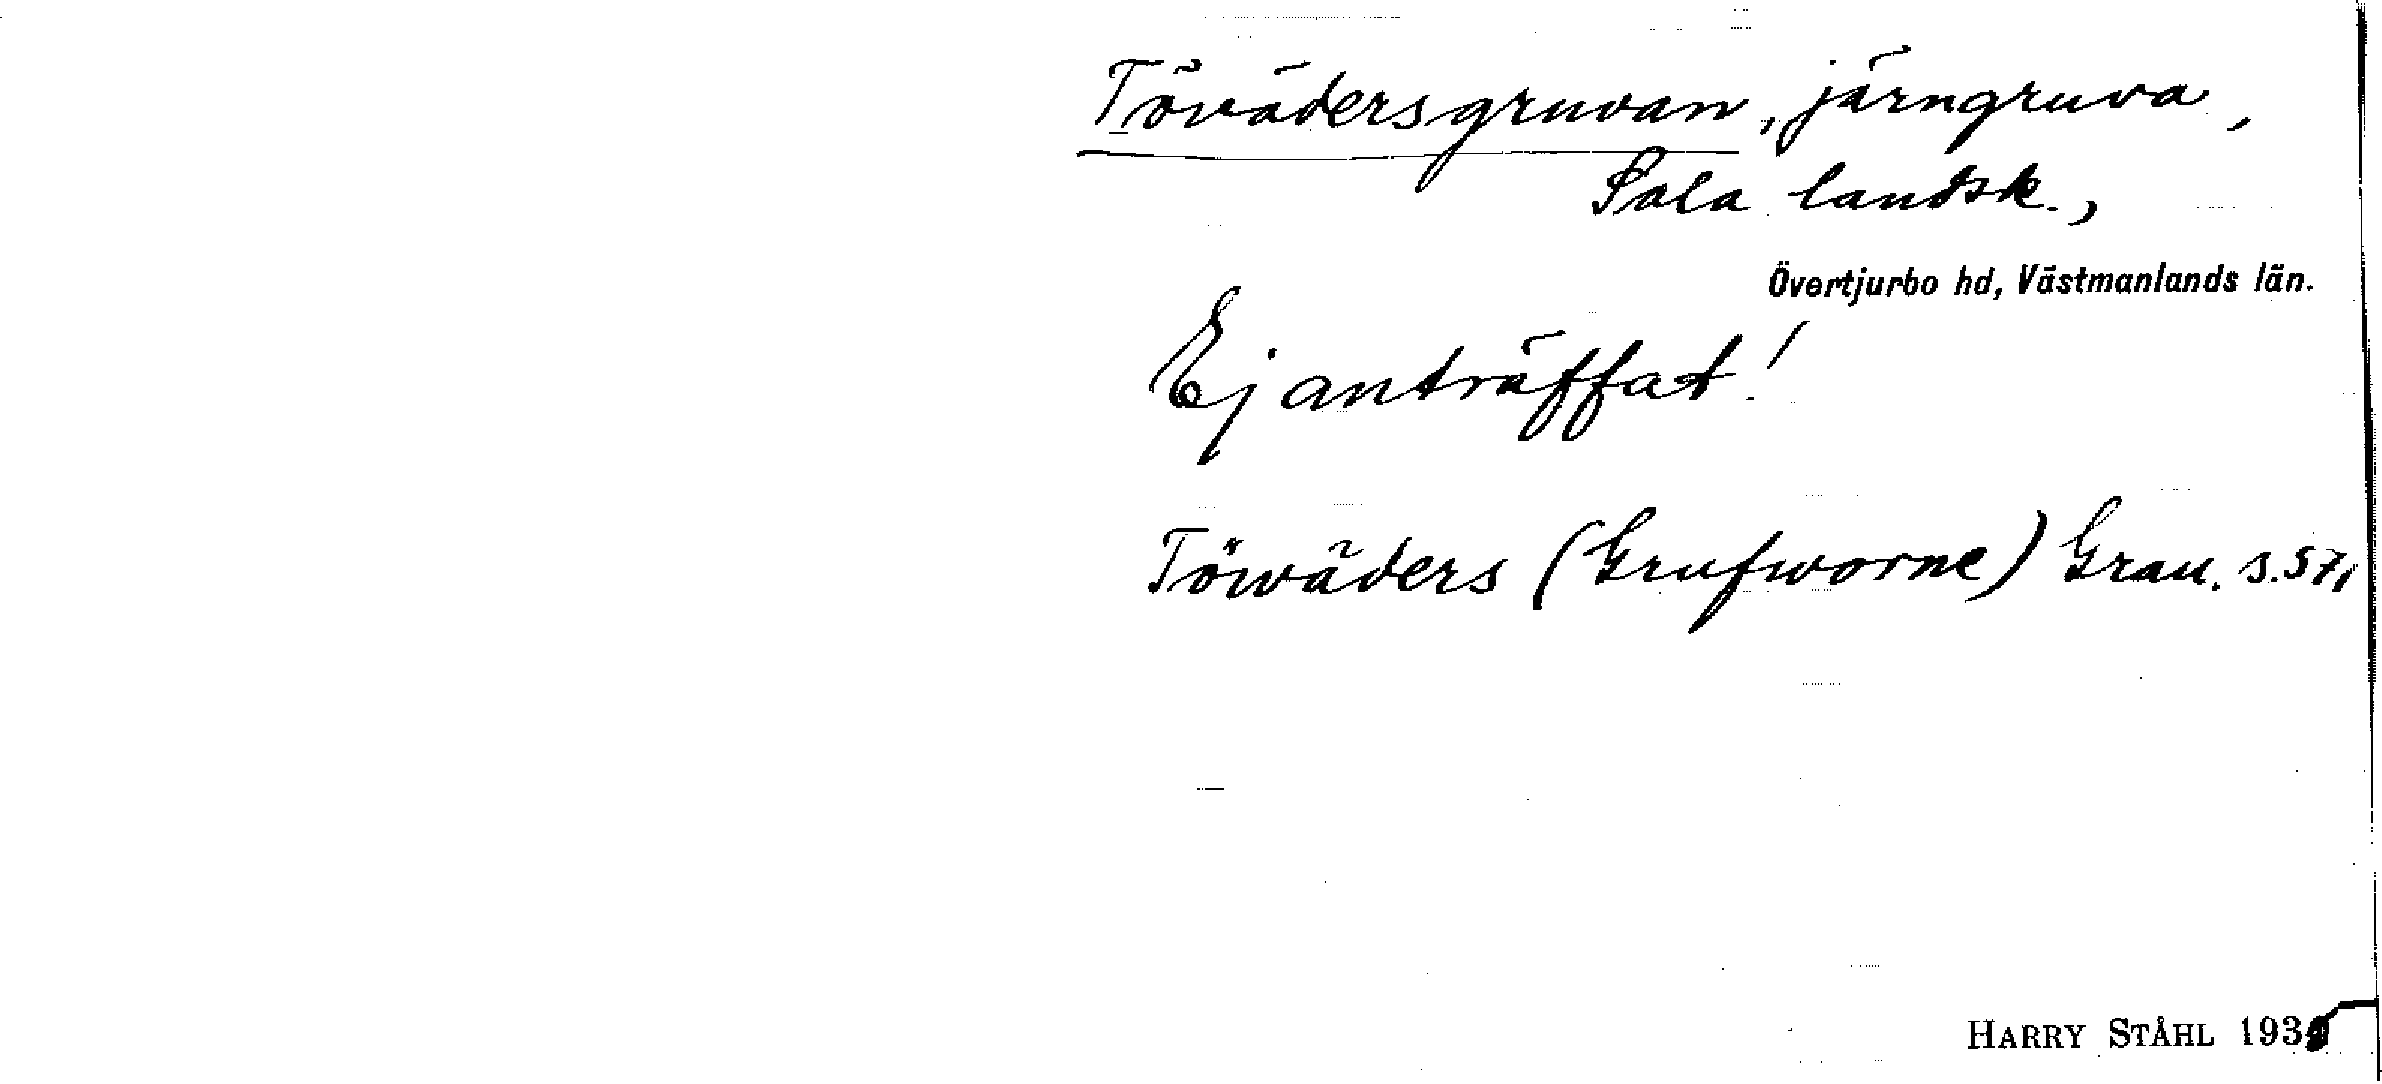 Tövädersgruvan, järngruva,
Sala landsk.,
Övertjurbo hd, Västmanlands län.
Ej anträffat!
Töwäders (Grufworne) Grau. s. 57,
HARRY STÅHL